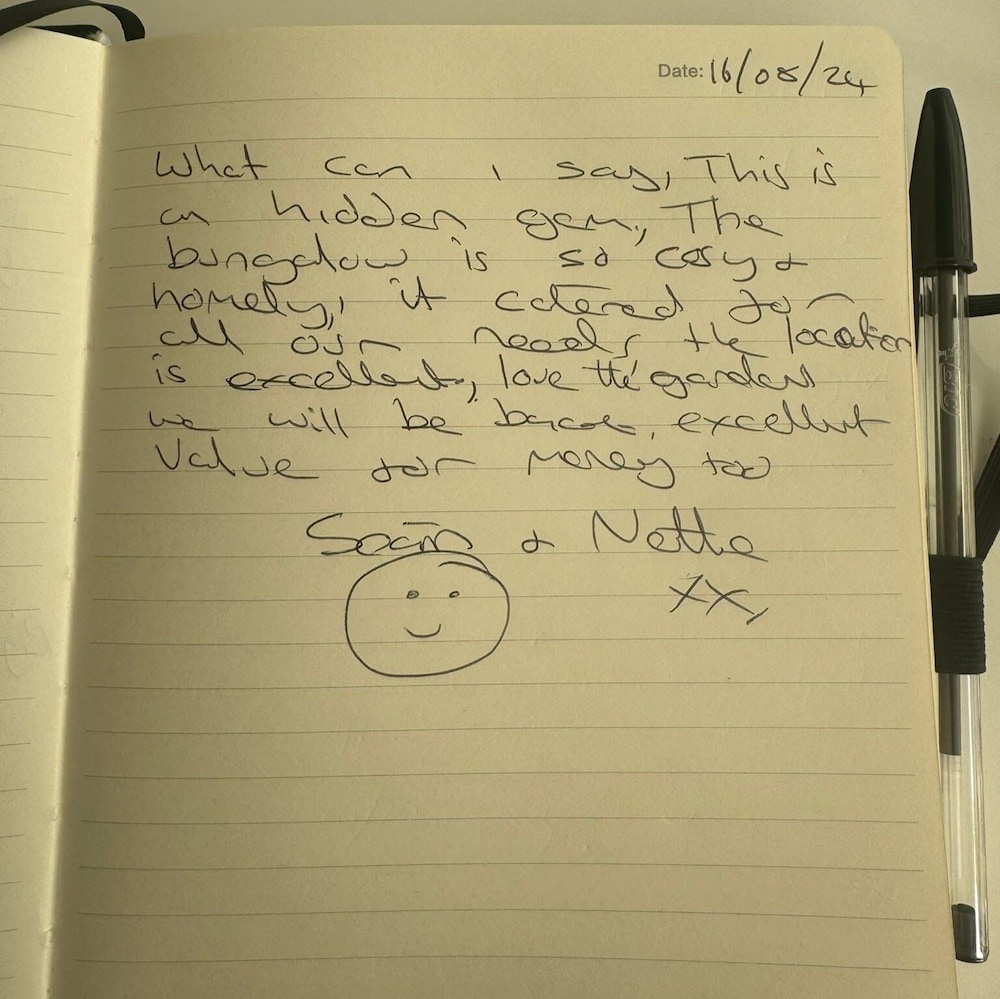 Date: 16/08/24
What can i say, This is
an hidden gem, The
bungalow is so cosy &
homely, it catered for
all our needs, the location
is excellent, love the garden
we will be back, excellent
Value for money too
Seán & Nette
xx,